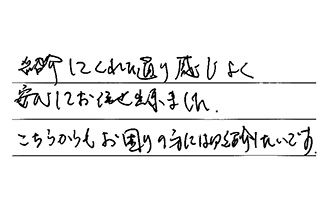 紹介してくれた通り感じよく
安心してお任せ出来ました。
こちらからもお困りの方にはご紹介したいです。